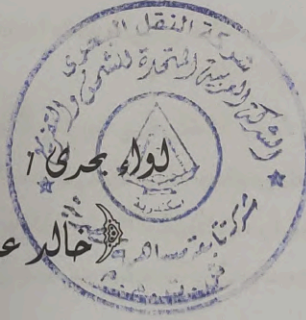 شركة النقل البحري
الشركة العربية المتحدة للشحن والتفريغ
اسكندرية
شركة تابعة مساهمة
لواء بحري /
خالد